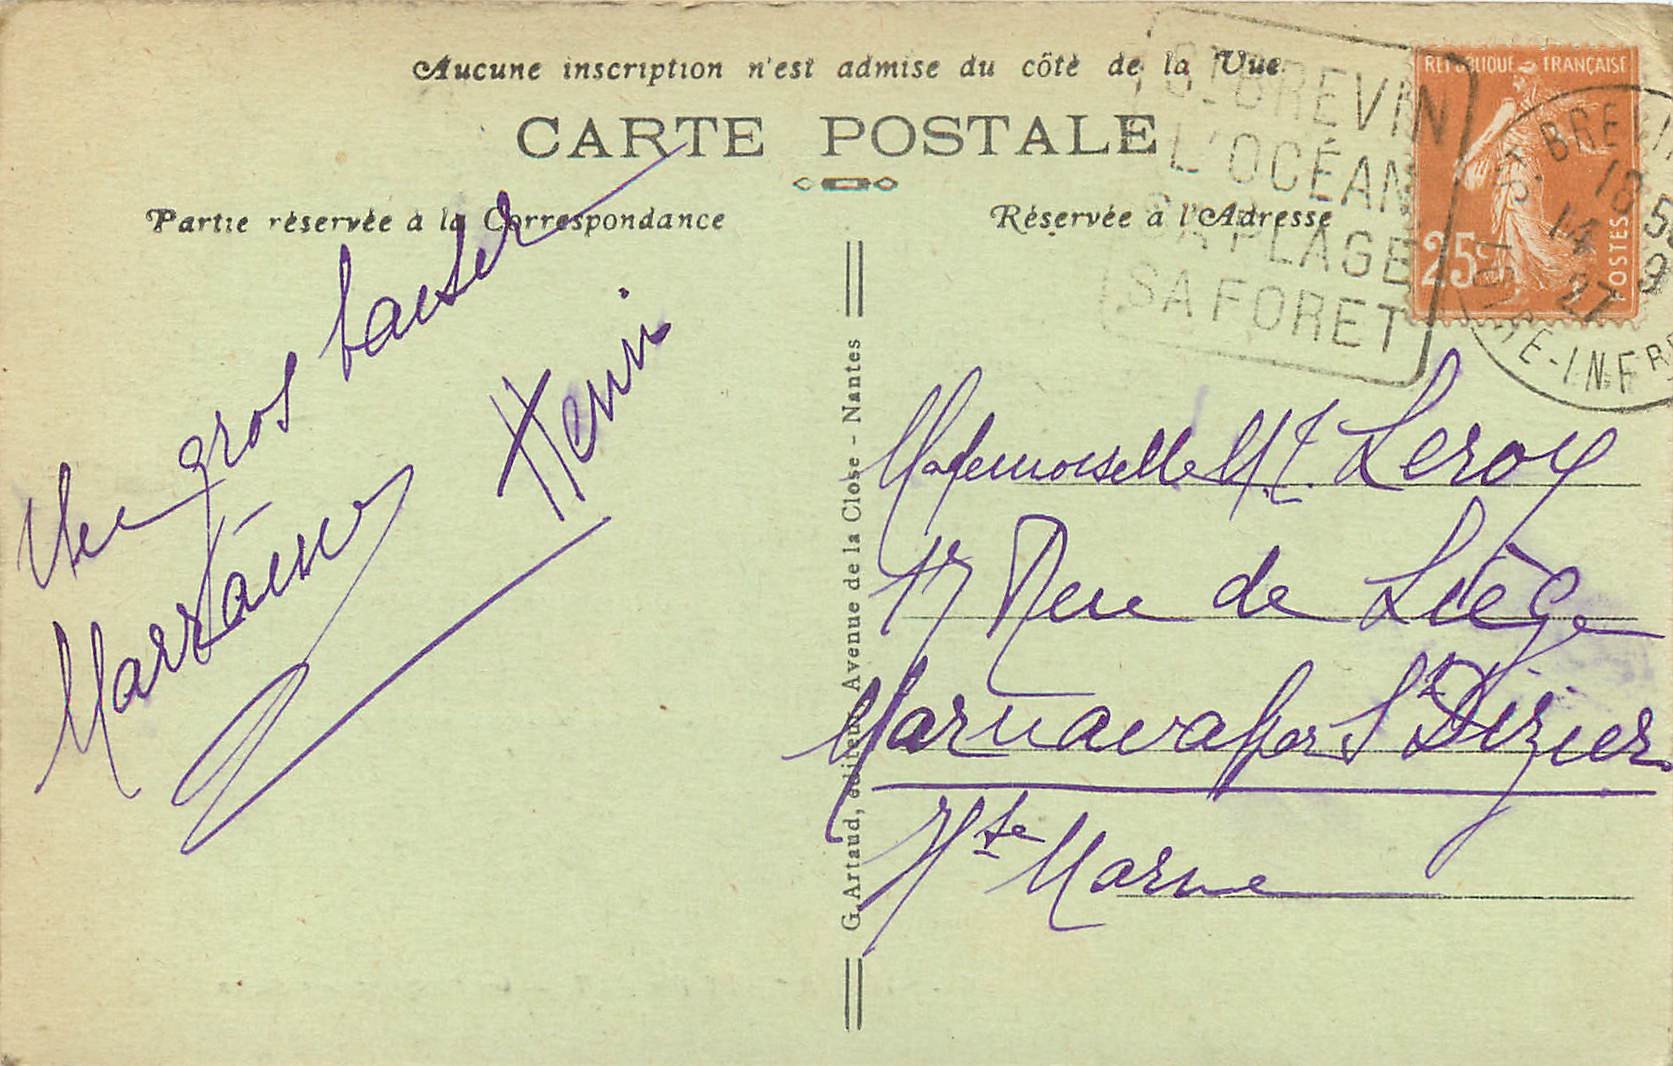 Aucune inscription n'est admise du côté de la Vue
CARTE POSTALE
Partie réservée à la Correspondance
Réservée à l'Adresse
St BREVIN
L'OCÉAN
SA PLAGE
SA FORET
REPUBLIQUE FRANÇAISE
25c
POSTES
St BREVIN
18
14 9
27
INFRE
Un gros baiser
Henri
G. Artaud, éditeur, Avenue de la Close - Nantes
Mademoiselle M.T. Leroy
17 Rue de Liège
Marnaval par St Dizier
Hte Marne